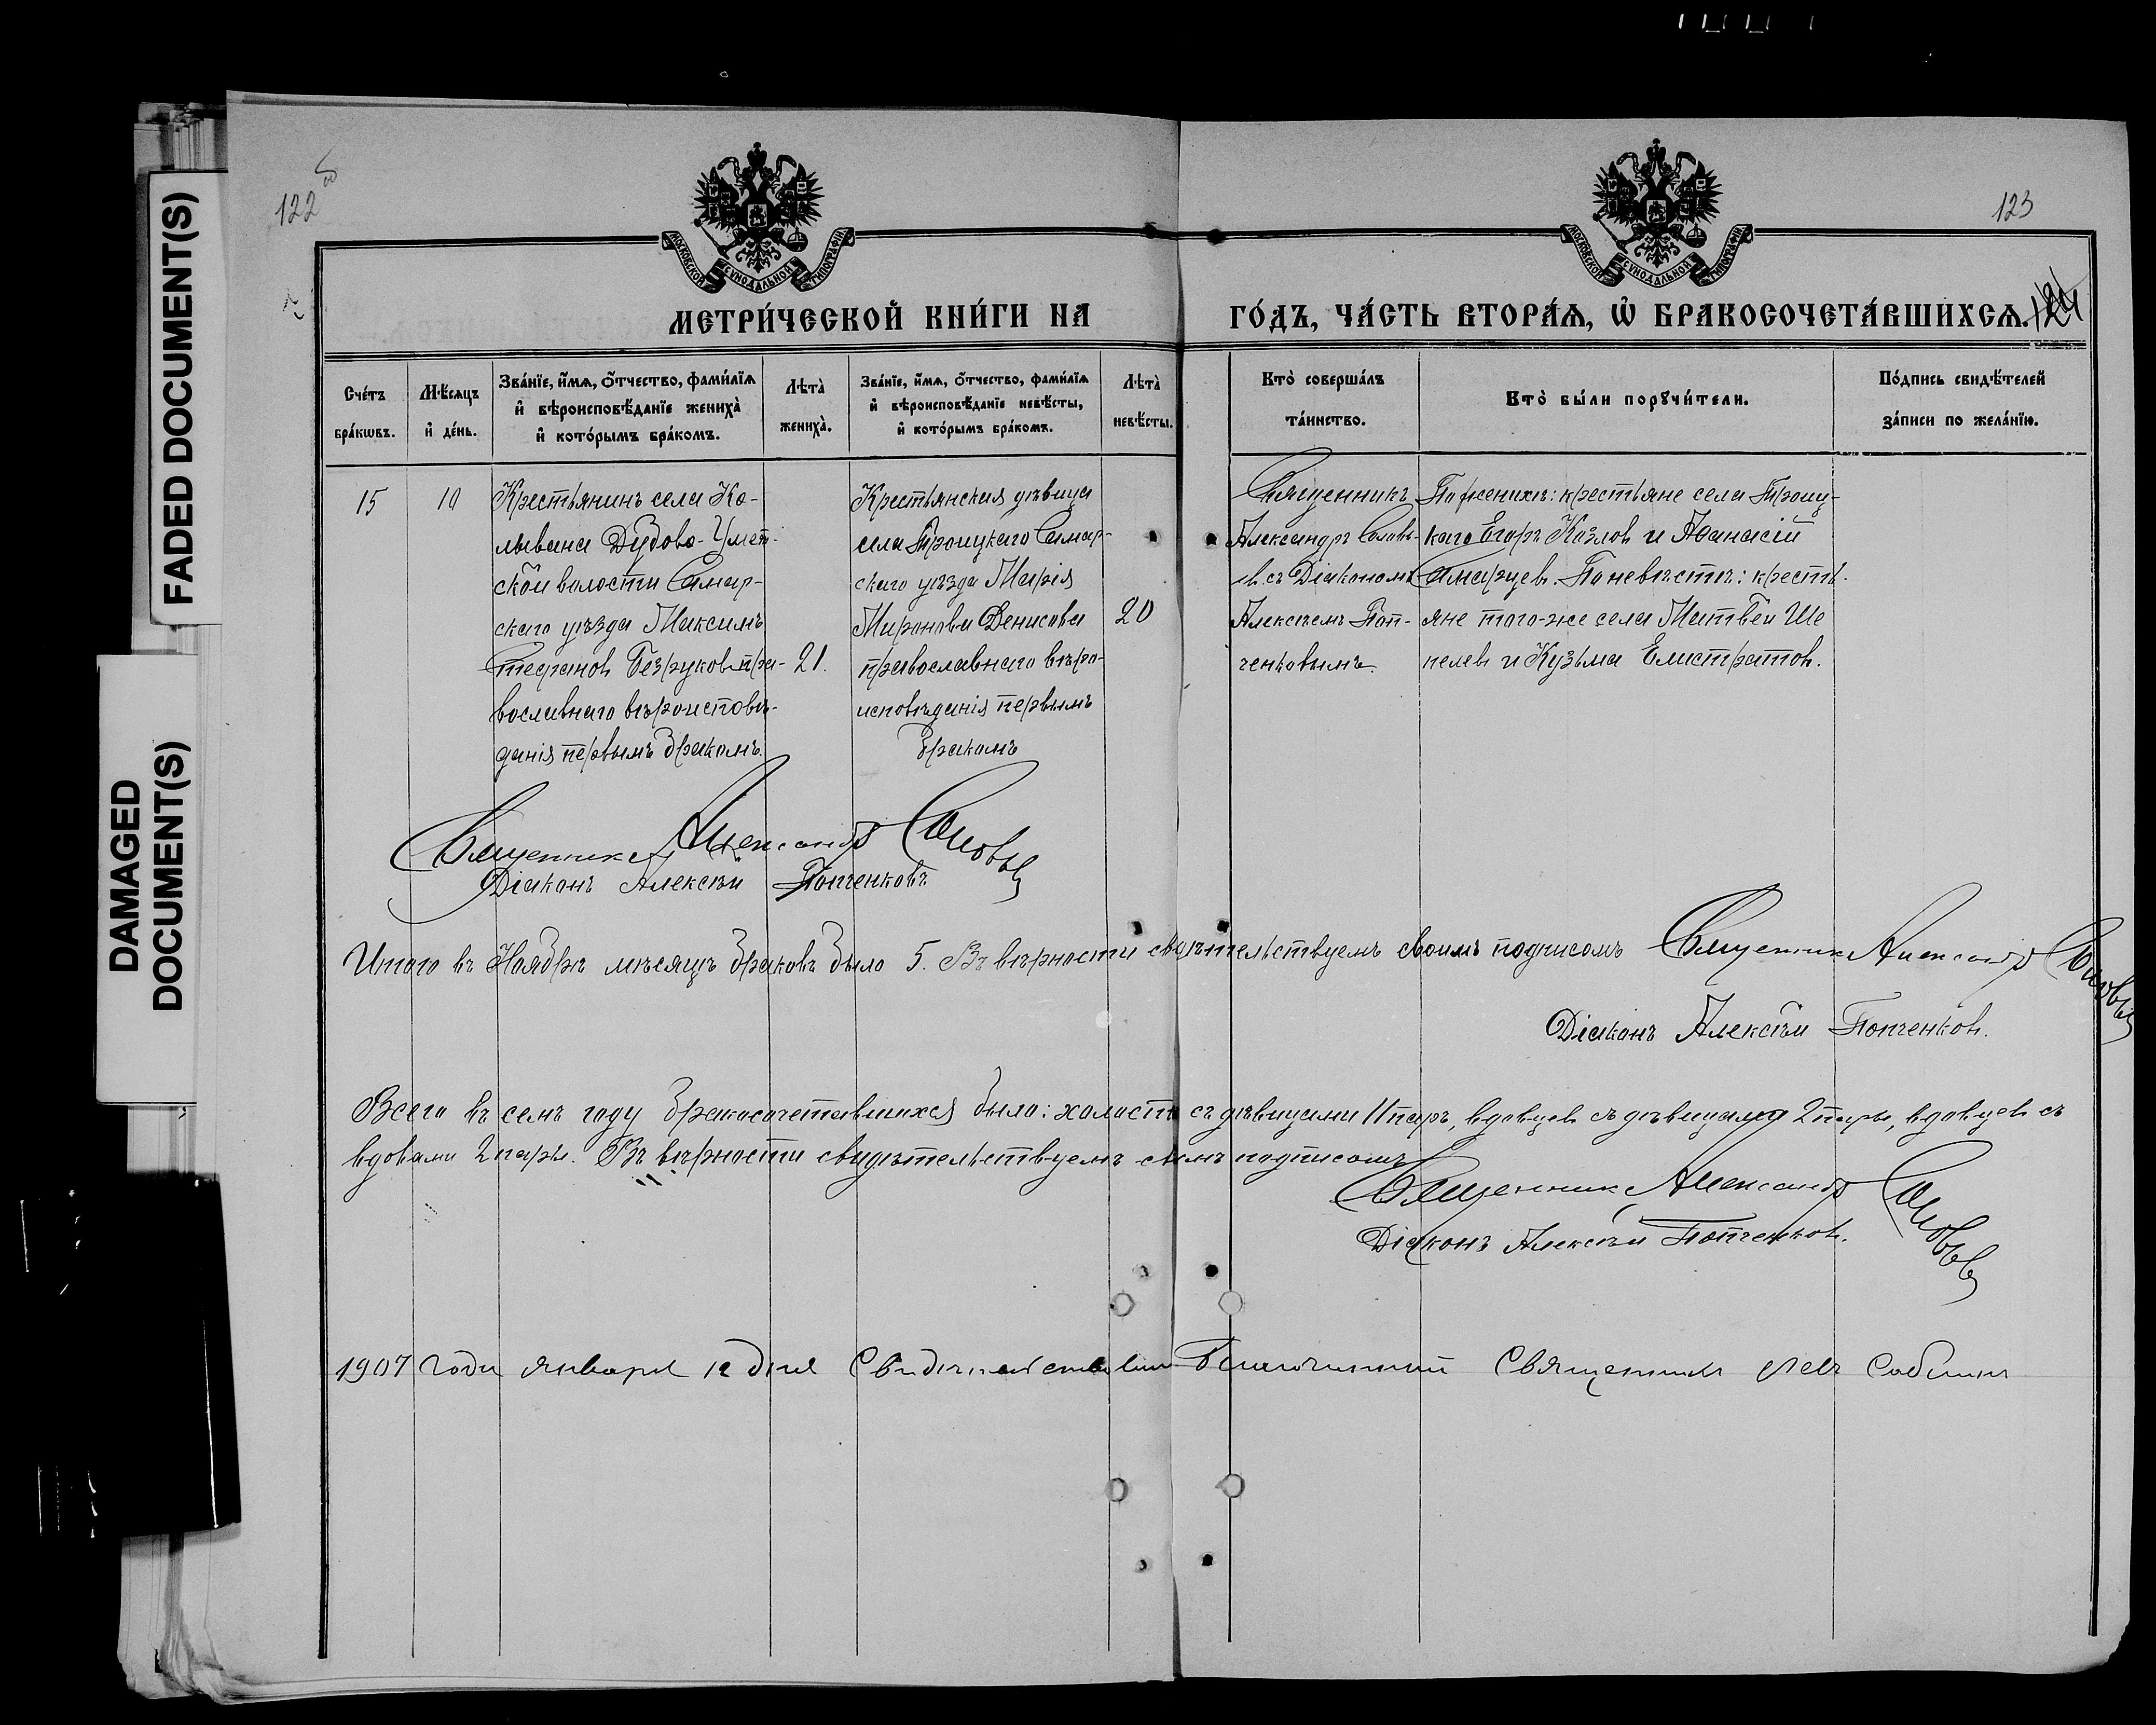 FADED DOCUMENT(S)
DAMAGED
DOCUMENT(S)
122 об
123
124
МОСКОВСКОЙ СѴНОДАЛЬНОЙ ТИПОГРАФІИ
МОСКОВСКОЙ СѴНОДАЛЬНОЙ ТИПОГРАФІИ
МЕТРИ́ЧЕСКОЙ КНИ́ГИ НА
ГО́ДЪ, ЧА́СТЬ ВТОРА́Ѧ, Ѡ҆ БРАКОСОЧЕТА́ВШИХСѦ.
Сче́тъ
бра́кѡвъ.
Мѣ́сяцъ
и҆ де́нь.
Зва́нїе, и҆́мѧ, ѻ҆́тчество, фами́лїѧ
и҆ вѣроисповѣ́данїе жениха̀
и҆ кото́рымъ бра́комъ.
Лѣта̀
жениха̀.
Зва́нїе, и҆́мѧ, ѻ҆́тчество, фами́лїѧ
и҆ вѣроисповѣ́данїе невѣ́сты,
и҆ кото́рымъ бра́комъ.
Лѣта̀
невѣ́сты.
Кто̀ соверша́лъ
та́инство.
Кто̀ бы́ли порꙋчи́тели.
По́дпись свидѣ́телей
за́писи по жела́нїю.
15
10
Крестьянинъ села Ко-
лывана Дубово-Умет-
ской волости Самар-
скаго уѣзда Максимъ
Стефановъ Безруковъ пра-
вославнаго вѣроисповѣ-
данія первымъ бракомъ.
21.
Крестьянская дѣвица
села Троицкаго Самар-
скаго уѣзда Марія
Миронова Денисова
православнаго вѣро-
исповѣданія первымъ
бракомъ
20
Священникъ
Александръ Соловь-
евъ съ Діакономъ
Алексѣемъ Поп-
ченковымъ.
По женихѣ: крестьяне села Троиц-
каго Егоръ Козловъ и Аѳанасій
Самарцевъ. По невѣстѣ: кресть-
яне того-же села Матвей Ше
пелевъ и Кузьма Елистратовъ.
Священникъ Александръ Соловьевъ
Діаконъ Алексѣй Попченковъ
Итого въ Ноябрѣ мѣсяцѣ браковъ было 5. Въ вѣрности свидѣтельствуемъ своимъ подписомъ Священникъ Александръ Соловьевъ
Діаконъ Алексѣй Попченковъ.
Всего въ семъ году бракосочетавшихся было: холостых съ дѣвицами 11 паръ, вдовцевъ съ дѣвицами 2 пары, вдовцевъ съ
вдовами 2 пары. Въ вѣрности свидѣтельствуемъ своимъ подписомъ
Священникъ Александръ Соловьевъ
Діаконъ Алексѣй Попченковъ.
1907 года января 12 дня Свидѣтельствовалъ Благочинный Священникъ Левъ